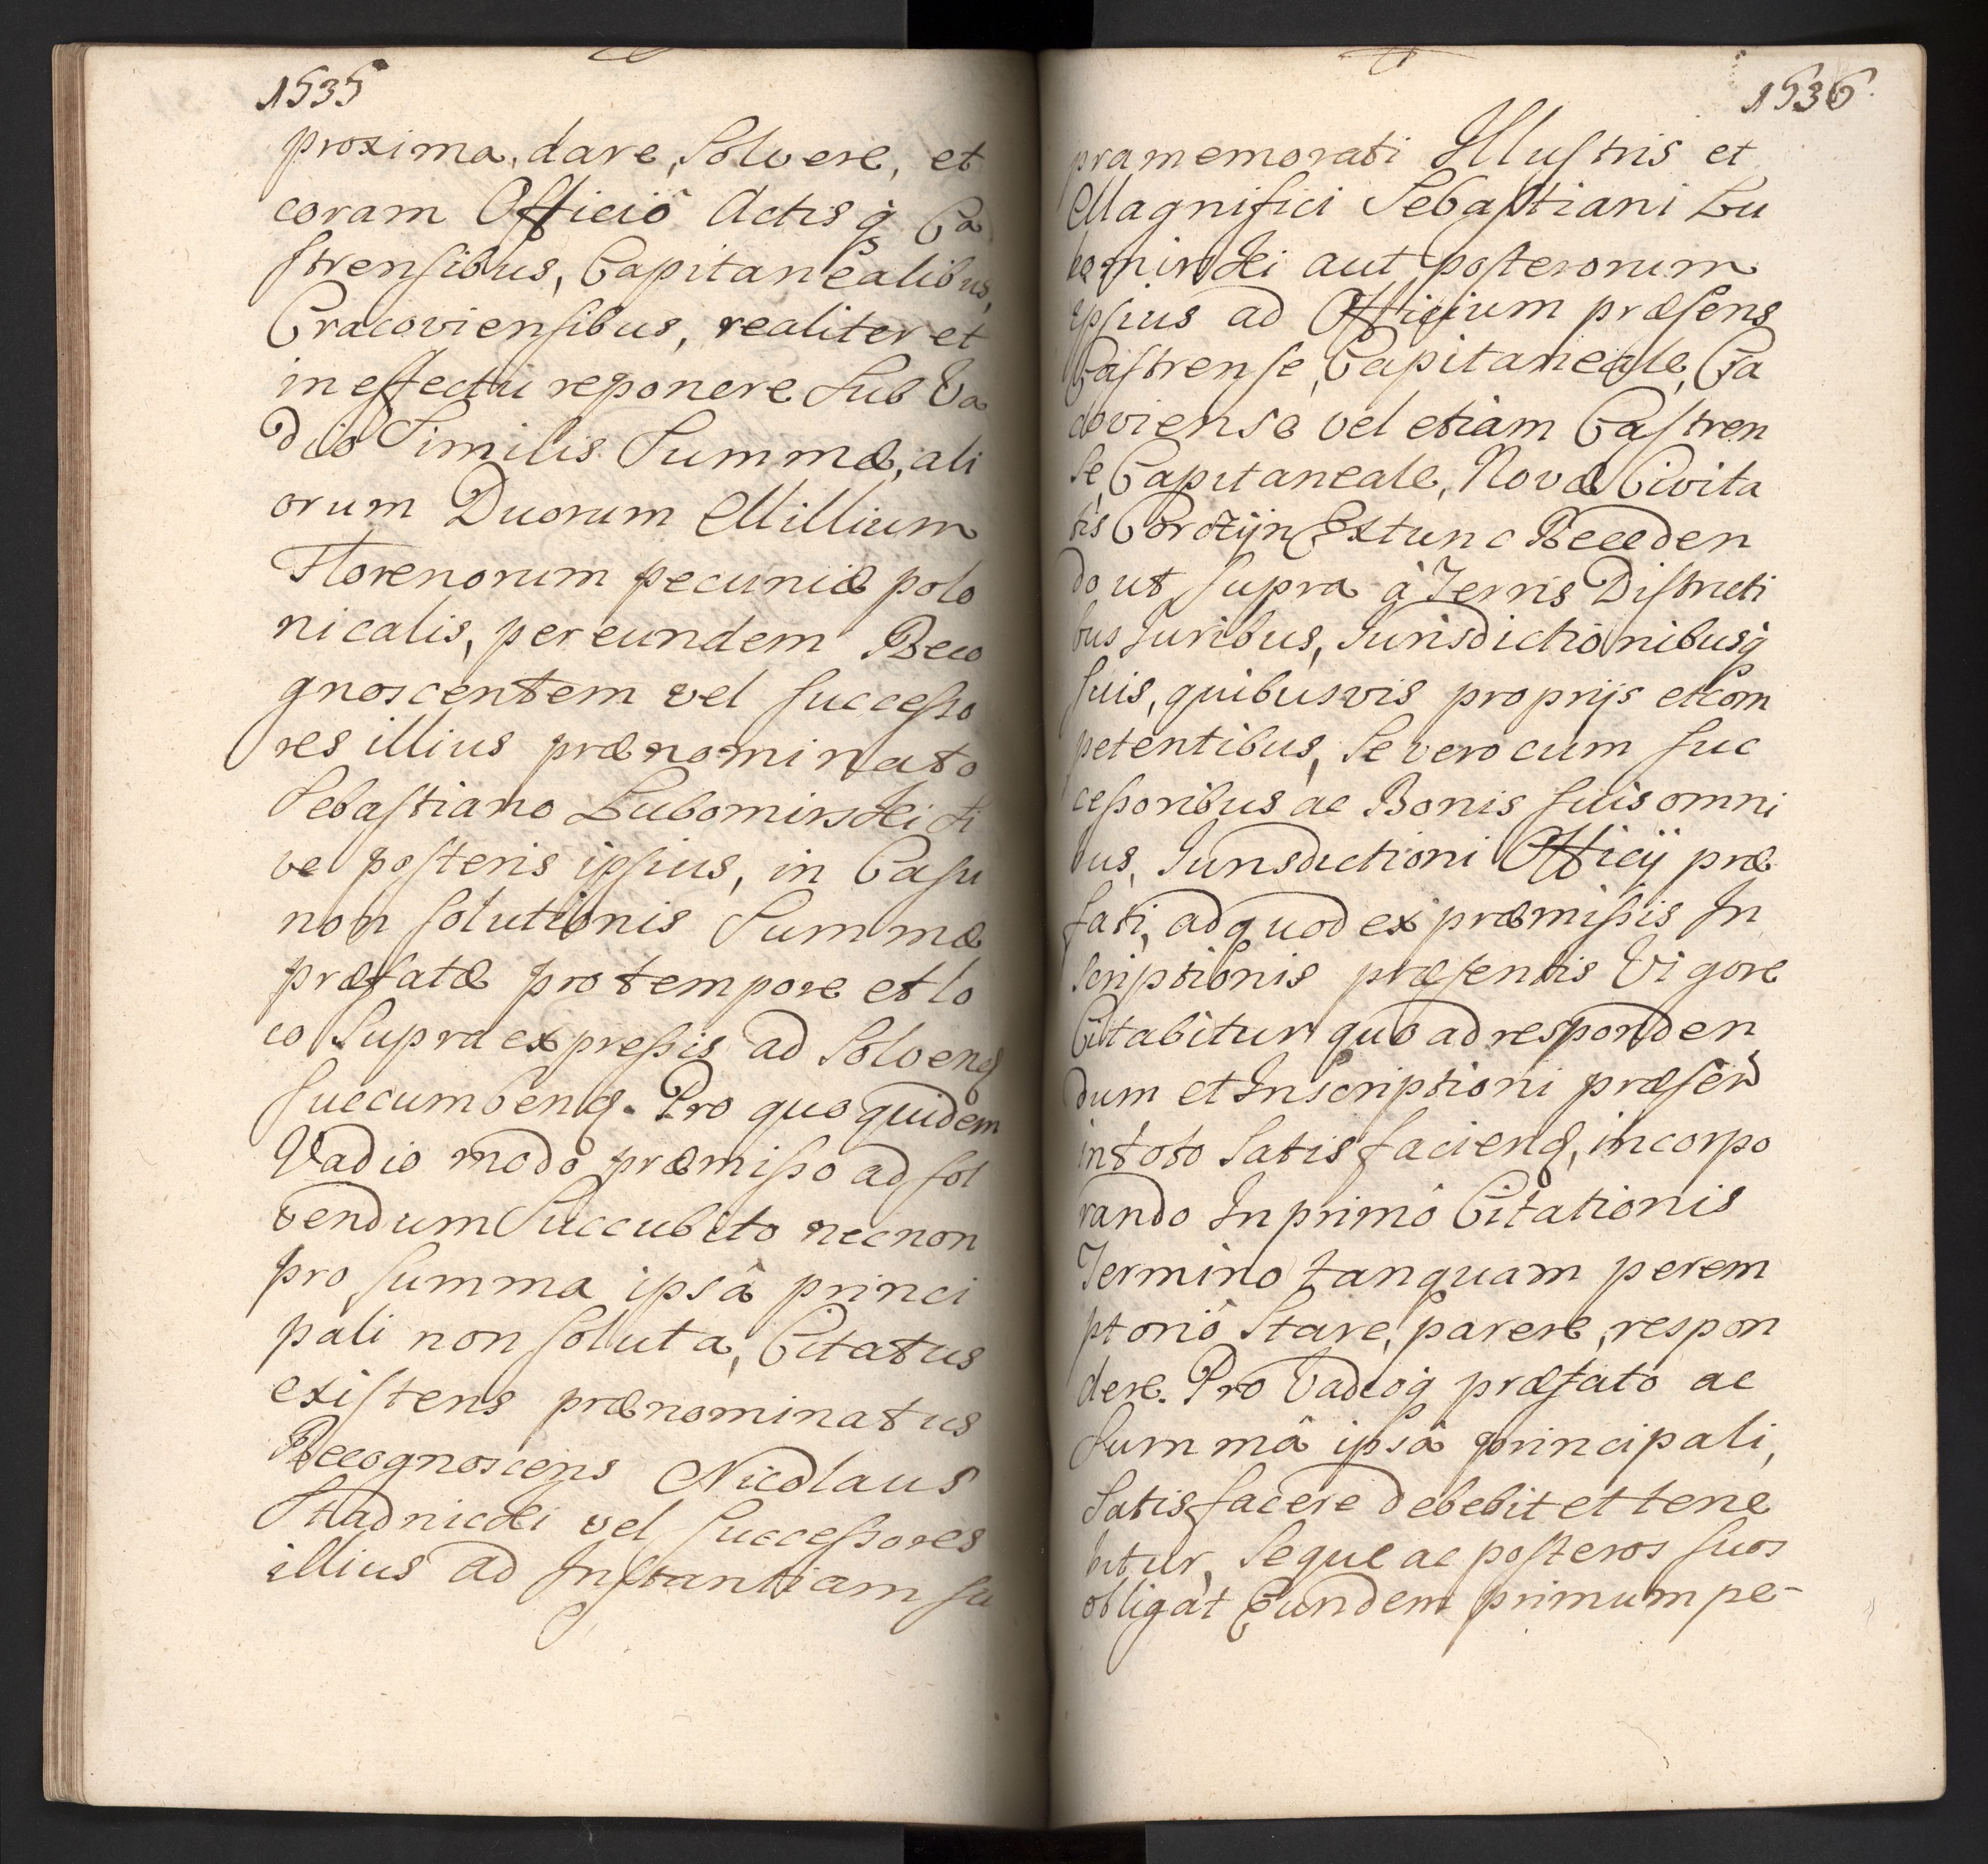 1535
proxima, dare, Solvere, et
coram Officiô Actisq́ Ca
ſtrenſibus, Capitanealibus,
Cracovienſibus, realiter et
in effectu reponere Sub Va
dio Similis Summæ, ali
orum Duorum Millium
Florenorum pecuniæ polo
nicalis, per eundem Reco
gnoscentem vel ſucceſso
res illius prænominato
Sebaſtiano Lubomirski Si
ve poſteris ipſius, in Caſu
non ſolutionis Summæ
præfatæ pro tempore et lo
co Supra expreſsis ad Solvend
ſuccumbend. Pro quo quidem
Vadio modô præmiſso ad ſol
vendum Succubito necnon
pro ſumma ipsâ princi
pali non ſoluta, Citatus
exiſtens prænominatus
Recognoscens Nicolaus
Stadnicki vel Succeſsores
illius ad Inſtantiam ſu
1536.
pramemorati Illuſtris et
Magnifici Sebaſtiani Lu
bomirski aut poſterorum
ipſius ad Officium præſens
Caſtrenſe, Capitaneale, Cra
coviense vel etiam Caſtren
se, Capitaneale, Novæ Civita
tis Corczijn Extunc Receden
do ut ſupra à Terris Diſtricti
bus Juribus, Jurisdictionibusq́
ſuis, quibusvis proprijs et com
petentibus, Se vero cum ſuc
ceſsoribus ac Bonis ſuis omni
bus, Jurisdictioni Officij præ
fati, ad quod ex præmiſsis In
scriptionis præſentis Vigore
Citabitur quo ad responden
dum et Inscriptioni præſen
in toto Satisfaciend, incorpo
rando In primô Citationis
Termino tanquam perem
ptoriô Stare, parere, respon
dere. Pro Vadioq́ præfato ac
Summâ ipsâ principali,
Satisfacere debebit et tene
bitur, Seque ac poſteros ſuos
obligat Eundem primum pe-